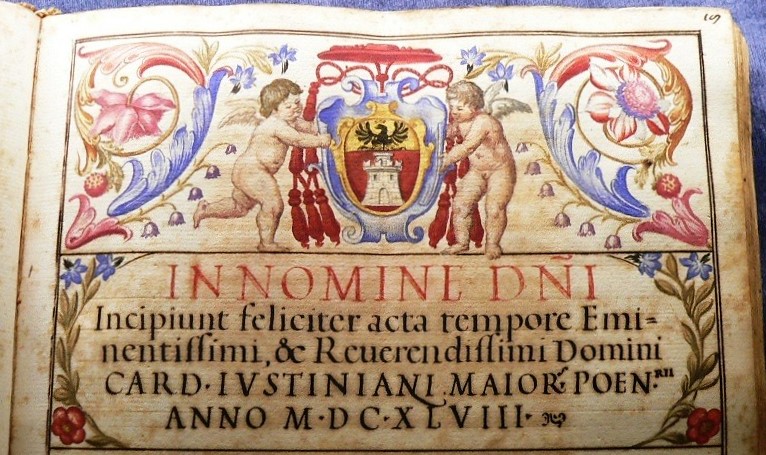 IN NOMINE DÑI
Incipiunt feliciter acta tempore Emi=
nentissimi, & Reuerendissimi Domini
CARD· IVSTINIANI MAIOR.s POEN.RII
ANNO M·D C·X L V I I I·